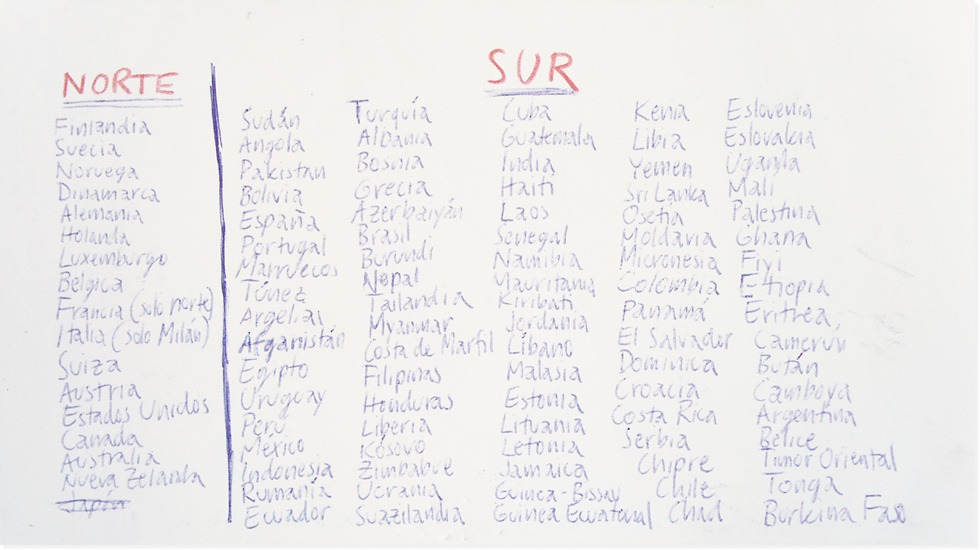 NORTE
Finlandia
Suecia
Noruega
Dinamarca
Alemania
Holanda
Luxemburgo
Bélgica
Francia (solo norte)
Italia (solo Milán)
Suiza
Austria
Estados Unidos
Canada
Australia
Nueva Zelanda
Japón
SUR
Sudán
Angola
Pakistan
Bolivia
España
Portugal
Marruecos
Túnez
Argelia
Afganistán
Egipto
Uruguay
Perú
México
Indonesia
Rumanía
Ecuador
Turquía
Albania
Bosnia
Grecia
Azerbaiyán
Brasil
Burundi
Nepal
Tailandia
Myanmar
Costa de Marfil
Filipinas
Honduras
Liberia
Kósovo
Zimbabue
Ucrania
Suazilandia
Cuba
Guatemala
India
Haiti
Laos
Senegal
Namibia
Mauritania
Kiribati
Jordania
Líbano
Malasia
Estonia
Lituania
Letonia
Jamaica
Guinea-Bissay
Guinea Ecuatorial
Kenia
Libia
Yemen
Sri Lanka
Osetia
Moldavia
Micronesia
Colombia
Panamá
El Salvador
Dominica
Croacia
Costa Rica
Serbia
Chipre
Chile
Chad
Eslovenia
Eslovakia
Uganda
Mali
Palestina
Ghana
Fiyi
Ethiopia
Eritrea
Camerun
Bután
Camboya
Argentina
Belice
Timor Oriental
Tonga
Burkina Faso